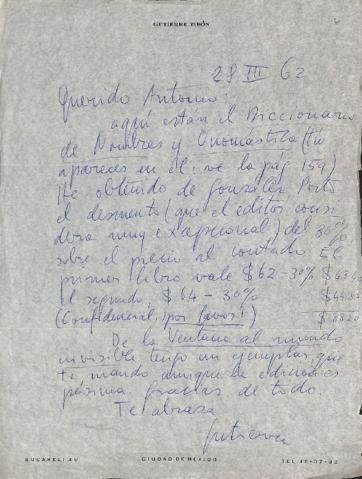 GUTIERRE TIBÓN
28 III 62
Querido Antonio:
aquí están el Diccionario
de Nombres y Onomástica (tú
apareces en él: ve la pág 159)
He obtenido de González Porto
el descuento (que el editor consi
dera muy excepcional) del 30%
sobre el precio al contado. El
primer libro vale $62-30% $43.40
el segundo, $64-30% $44.80
(Confidencial, ¡por favor!) $88.20
De la Ventana al mundo
invisible tengo un ejemplar, que
te mando aunque la edición es
pésima. Gracias de todo.
Te abraza
Gutierre
BUCARELI CIUDAD DE MEXICO TEL.